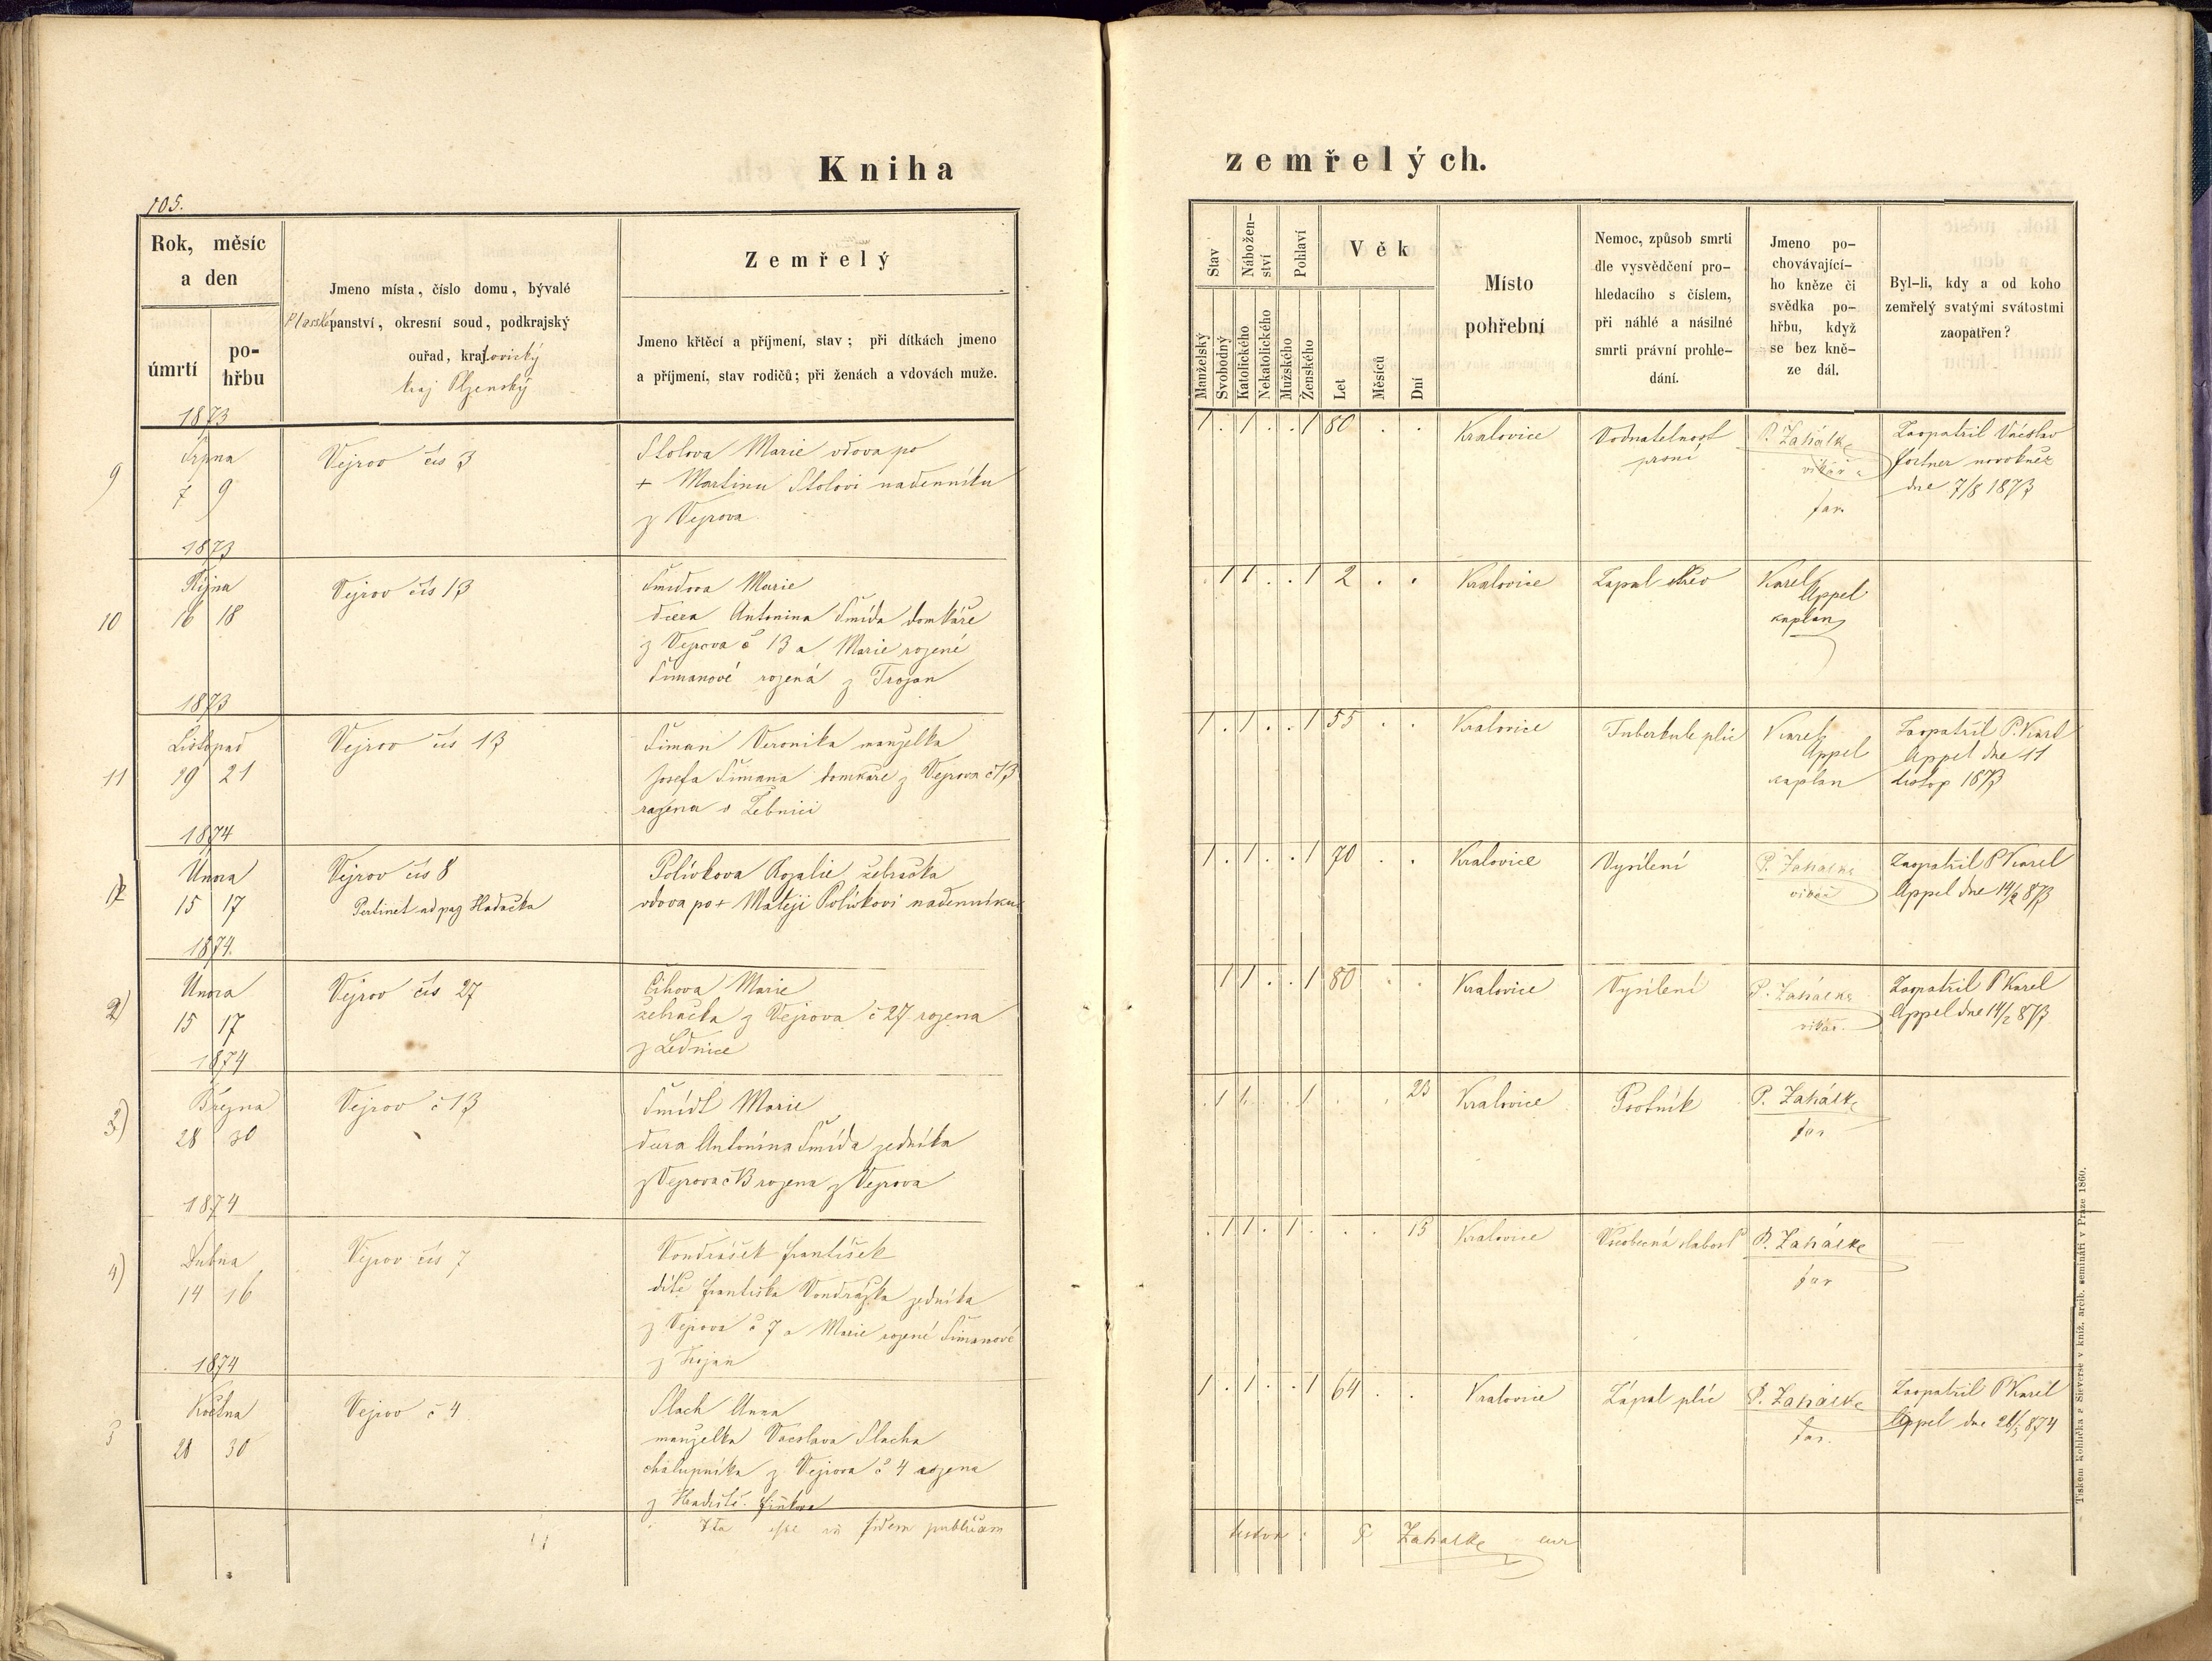 Kniha
zemřelých.
105.
Rok, měsíc
a den
úmrtí
po-
hřbu
Jmeno místa, číslo domu, bývalé
Plasské panství, okresní soud, podkrajský
ouřad, kraj
kraj Plzenský
Zemřelý
Jmeno křtěcí a příjmení, stav; při dítkách jmeno
a příjmení, stav rodičů; při ženách a vdovách muže.
Stav
Nábožen-
ství
Pohlaví
Věk
Manželský
Svobodný
Katolického
Nekatolického
Mužského
Ženského
Let
Měsíců
Dní
Místo
pohřební
Nemoc, způsob smrti
dle vysvědčení pro-
hledacího s číslem,
při náhlé a násilné
smrti právní prohle-
dání.
Jmeno po-
chovávající-
ho kněze či
svědka po-
hřbu, když
se bez kně-
ze dál.
Byl-li, kdy a od koho
zemřelý svatými svátostmi
zaopatřen?
1873
9
Srpna
7 9
Vejrov čís 3
Stolova Marie vdova po
+ Martinu Stolovi nadenníku
z Vejrova
1 . 1 . . 1 80 . .
Kralovice
Vodnatelnost
prsní
P. Zahálka
vikář
far.
Zaopatřil Václav
fortner novokněz
dne 7/8 1873
1873
10
Října
16 18
Vejrov čís 13
Šmidova Marie
dcera Antonina Šmída domkáře
z Vejrova č 13 a Marie rojené
Šimanové rojená z Trojan
. 1 1 . . 1 2 . .
Kralovice
Zapal střev
Karel
Appel
kaplan
1873
11
Listopad
19 21
Vejrov čís 13
Šiman Veronika manželka
Josefa Šimana domkáře z Vejrova č 13
rojena v Žebnici
1 . 1 . . 1 55 . .
Kralovice
Tuberkule plic
Karel
Appel
kaplan
Zaopatřil P. Karel
Appel dne 11
listop 1873
1874
Února
15 17
Vejrov čís 8
Pertinet ad pag Hadačka
Polívkova Rozalie žebračka
vdova po + Matěji Polívkovi nadenníku
1 . 1 . . 1 70 . .
Kralovice
Vysílení
P. Zahálka
vikář
Zaopatřil P Karel
Appel dne 14/2 873
1874.
2)
Února
15 17
Vejrov čís 27
Čihova Marie
žebračka z Vejrova č 27 rojena
z Lednice
1 1 . . 1 80 . .
Kralovice
Vysílení
P. Zahálka
vikář.
Zaopatřil P Karel
Appel dne 14/2 873
1874
3)
Března
28 30
Vejrov č 13
Šmídt Marie
dcera Antonína Šmída zedníka
z Vejrova č 13 rojena z Vejrova
. 1 1 . . 1 . . 23
Kralovice
Psotník
P. Zahálka
far
1874
4)
Dubna
14 16
Vejrov čís 7
Vondrášek František
dítě Františka Vondráška zedníka
z Vejrova č 7 a Marie rojené Šimanové
z Trojan
. 1 1 . 1 . . . 15
Kralovice
Všeobecná slabost
P. Zahálka
far
1874
5
Května
28 30
Vejrov č 4
Slach Anna
manželka Vacslava Slacha
chalupníka z Vejrova č 4 rojena
z Hradiště.
1 . 1 . . 1 64 . .
Kralovice
Zápal plic
P. Zahálka
far.
Zaopatřil P Karel
Appel dne 26/5 874
Ita esse in fidem publicam
testor: P Zahalka cur
Tiskem Rohlíčka a Sieverse v kníž. arcib. semináři v Praze 1860.